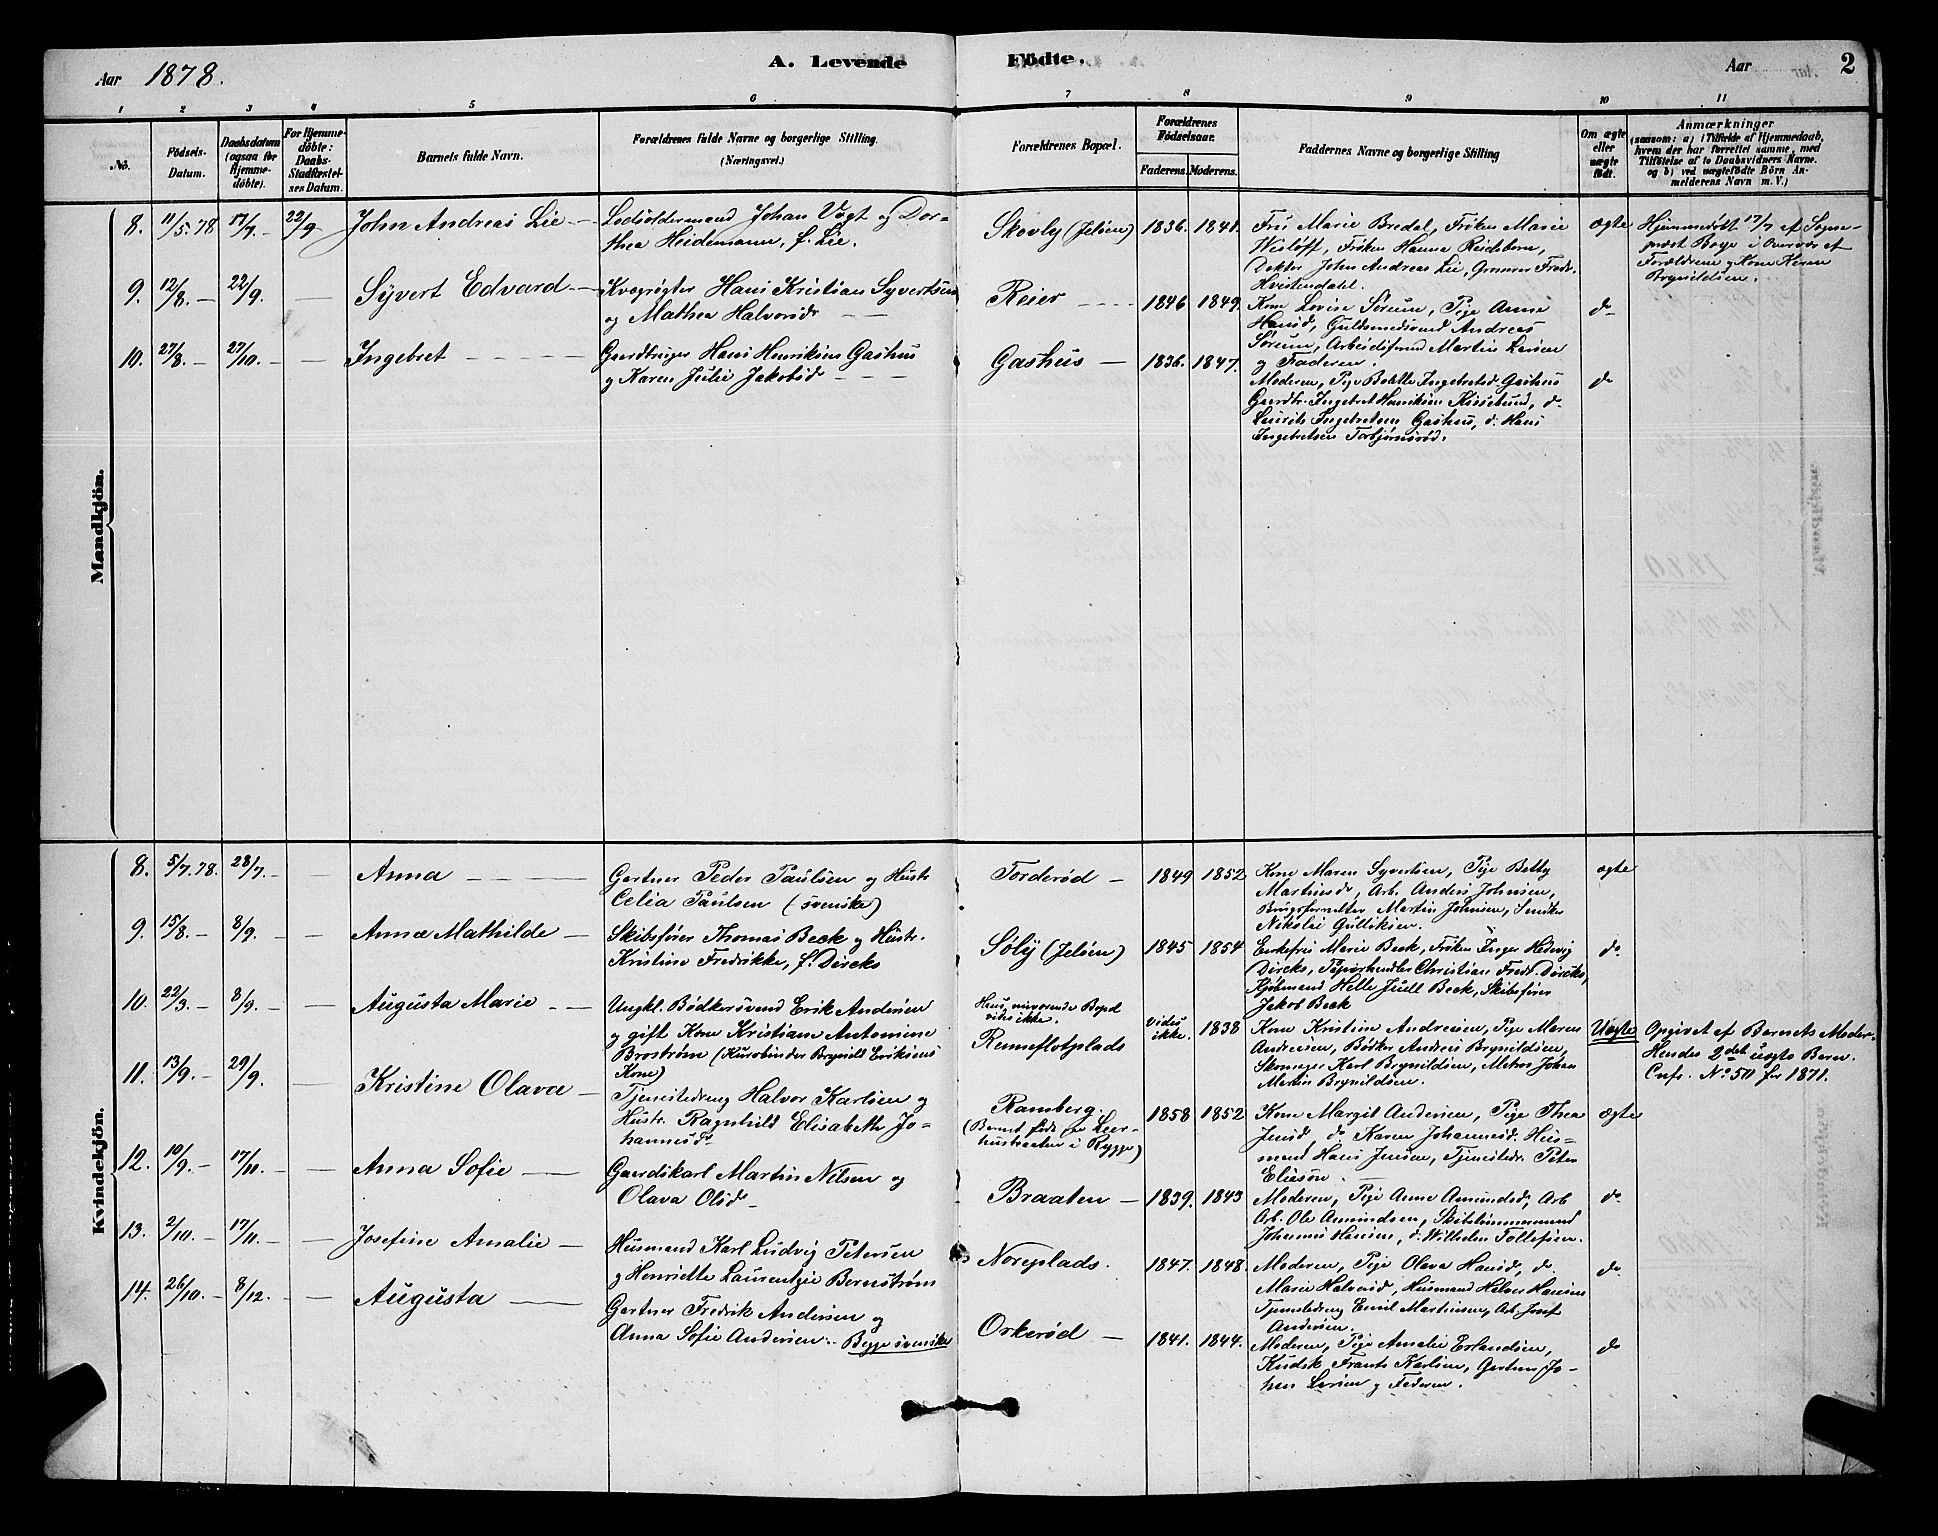 Aar 1878.
A. Levende Födte.
Aar 2
1 2 3 4 5 6 7 8 9 10 11
No.
Födsels-Datum.
Daabsdatum (ogsaa for Hjemmedöbte).
For Hjemmedöbte: Daabs-Stadfæstelses Datum.
Barnets fulde Navn.
Forældrenes fulde Navne og borgerlige Stilling. (Næringsvei.)
Forældrenes Bopæl.
Forældrenes Födselsaar.
Faderens. Moderens.
Faddernes Navne og borgerlige Stilling
Om ægte eller uægte födt.
Anmærkninger
(saasom: a) i Tilfælde af Hjemmedaab, hvem der har forrettet samme, med Tilföielse af to Daabsvidners Navne. og b) ved uægtefödte Börn Anmelderens Navn m. V.)
Mandkjön.
8. 11/5.78 17/7.- 22/9- John Andreas Lie —
Lodsoldermand Johan Vogt og Dor-
thea Heidemann, f. Lie.
Skovly (Jelöen) 1836. 1841.
Fru Marie Bredal, Fröken Marie
Wisløff, Fröken Hanna
Doktor John Andreas Lie,
ægte
Hjemmedøbt 17/7 af Sogne-
præst Boye i Overvær af
Forældrene og Kone Karen
Brynildsen.
9. 12/8.- 22/9. — Syvert Edvard —
Kvægrøgter Hans Kristian Syvertsen
og Mathea Halvorsdr —
Reier 1846 1849.
Kone Lovise Sörum, Pige Anne
Hansd, Guldsmedsvend Andreas
Sörum, Arbeidsformd Martin Larsen
og Faderen.
do
10. 27/8.- 27/10.- — Ingebret —
Gaardbruger Hans Henriksen Gashus
og Karen Julie Jakobsd —
Gashus — 1836. 1847.
Moderen, Pige Bolette Ingebretsd Gashus
Gaardbr. Ingebret Henriksen Kissebund, d.
Laurits Ingebretsen Gashus, d. Hans
Ingebretsen Torbjörnsröd.
do
Kvindekjön.
8. 5/7.78. 28/7.- — Anna —
Gartner Peder Paulsen og Hustr
Celia Paulsen (svenske)
Torderød — 1849 1852
Kone Maren Syvertsen, Pige Betty
Martinsd, Arb. Anders Johnsen,
Brugsforvalter Martin Johnsen, Snedker
Nikolai Gulliksen.
ægte
9. 15/8.- 8/9. — Anna Mathilde —
Skibsförer Thomas Beck og Hustr.
Kristine Fredrikke, f. Dircks
Søly (Jelöen) 1845 1854
Enkefru Marie Beck, Fröken Inger Hedevig
Dircks, Papirhandler Christian Fredr. Dircks,
Kjöbmand Helle Juell Beck, Skibsförer
Jakob Beck
do
10. 22/3.- 8/9.- — Augusta Marie —
Ungkl. Bödkersvend Erik Andersen
og gift Kone Kristiane Antonine
Broström (Kurvbinder Brynild Eriksens
Kone)
Hans nuværende Bopæl
vides ikke.
Renneflotplads
Vides ikke. 1838
Kone Kristine Andreasen, Pige Maren
Andreasen, Bödker Andreas Brynildsen,
Skomager Karl Brynildsen, Matros Johan
Martin Brynildsen.
Uægte
Opgivet af Barnets Moder.
Hendes 2det uægte Barn.
Cnfr. No 50 for 1871.
11. 13/9.- 29/9. Kristine Olava —
Tjenestedreng Halvor Karlsen og
Hustr. Ragnhild Elisabeth Jo-
hannesdr
Ramberg.
(Barnet födt paa Leer-
husbraaten i Rygge)
1858 1852
Kone Margit Andersen, Pige Thea
Jensd do Karen Johannesd. Hus-
mand Hans Jensen, Tjenestedr. Peter
Eliasen.
ægte
12. 10/9.- 17/11.- — Anna Sofie —
Gaardskarl Martin Nilsen og
Olava Olsdr
Braaten — 1839. 1843
Moderen, Pige Anne Amundsd, Arb
Arb. Ole Amundsen, Skibstömmermand
Johannes Hansen, d. Wilhelm Tollefsen.
do
13. 2/10.- 17/11.- — Josefine Amalie —
Husmand Karl Ludvig Petersen
og Henriette Laurentzie Bernström
Noreplads. 1847. 1848.
Moderen, Pige Olava Hansd, d.
Marie Halvorsd, Husmand Halvor Hansen
Tjenestedreng Emil Martinsen, Arb. Josef
Andersen.
do
14. 26/10.- 8/12.- — Augusta —
Gartner Fredrik Andersen og
Anna Sofie Andersen. Begge svenske
Orkerød — 1841. 1844.
Moderen, Pige Amalie Erlandsen,
Kudsk Frants Karlsen, Gartner Jo-
han Larsen og Faderen.
do